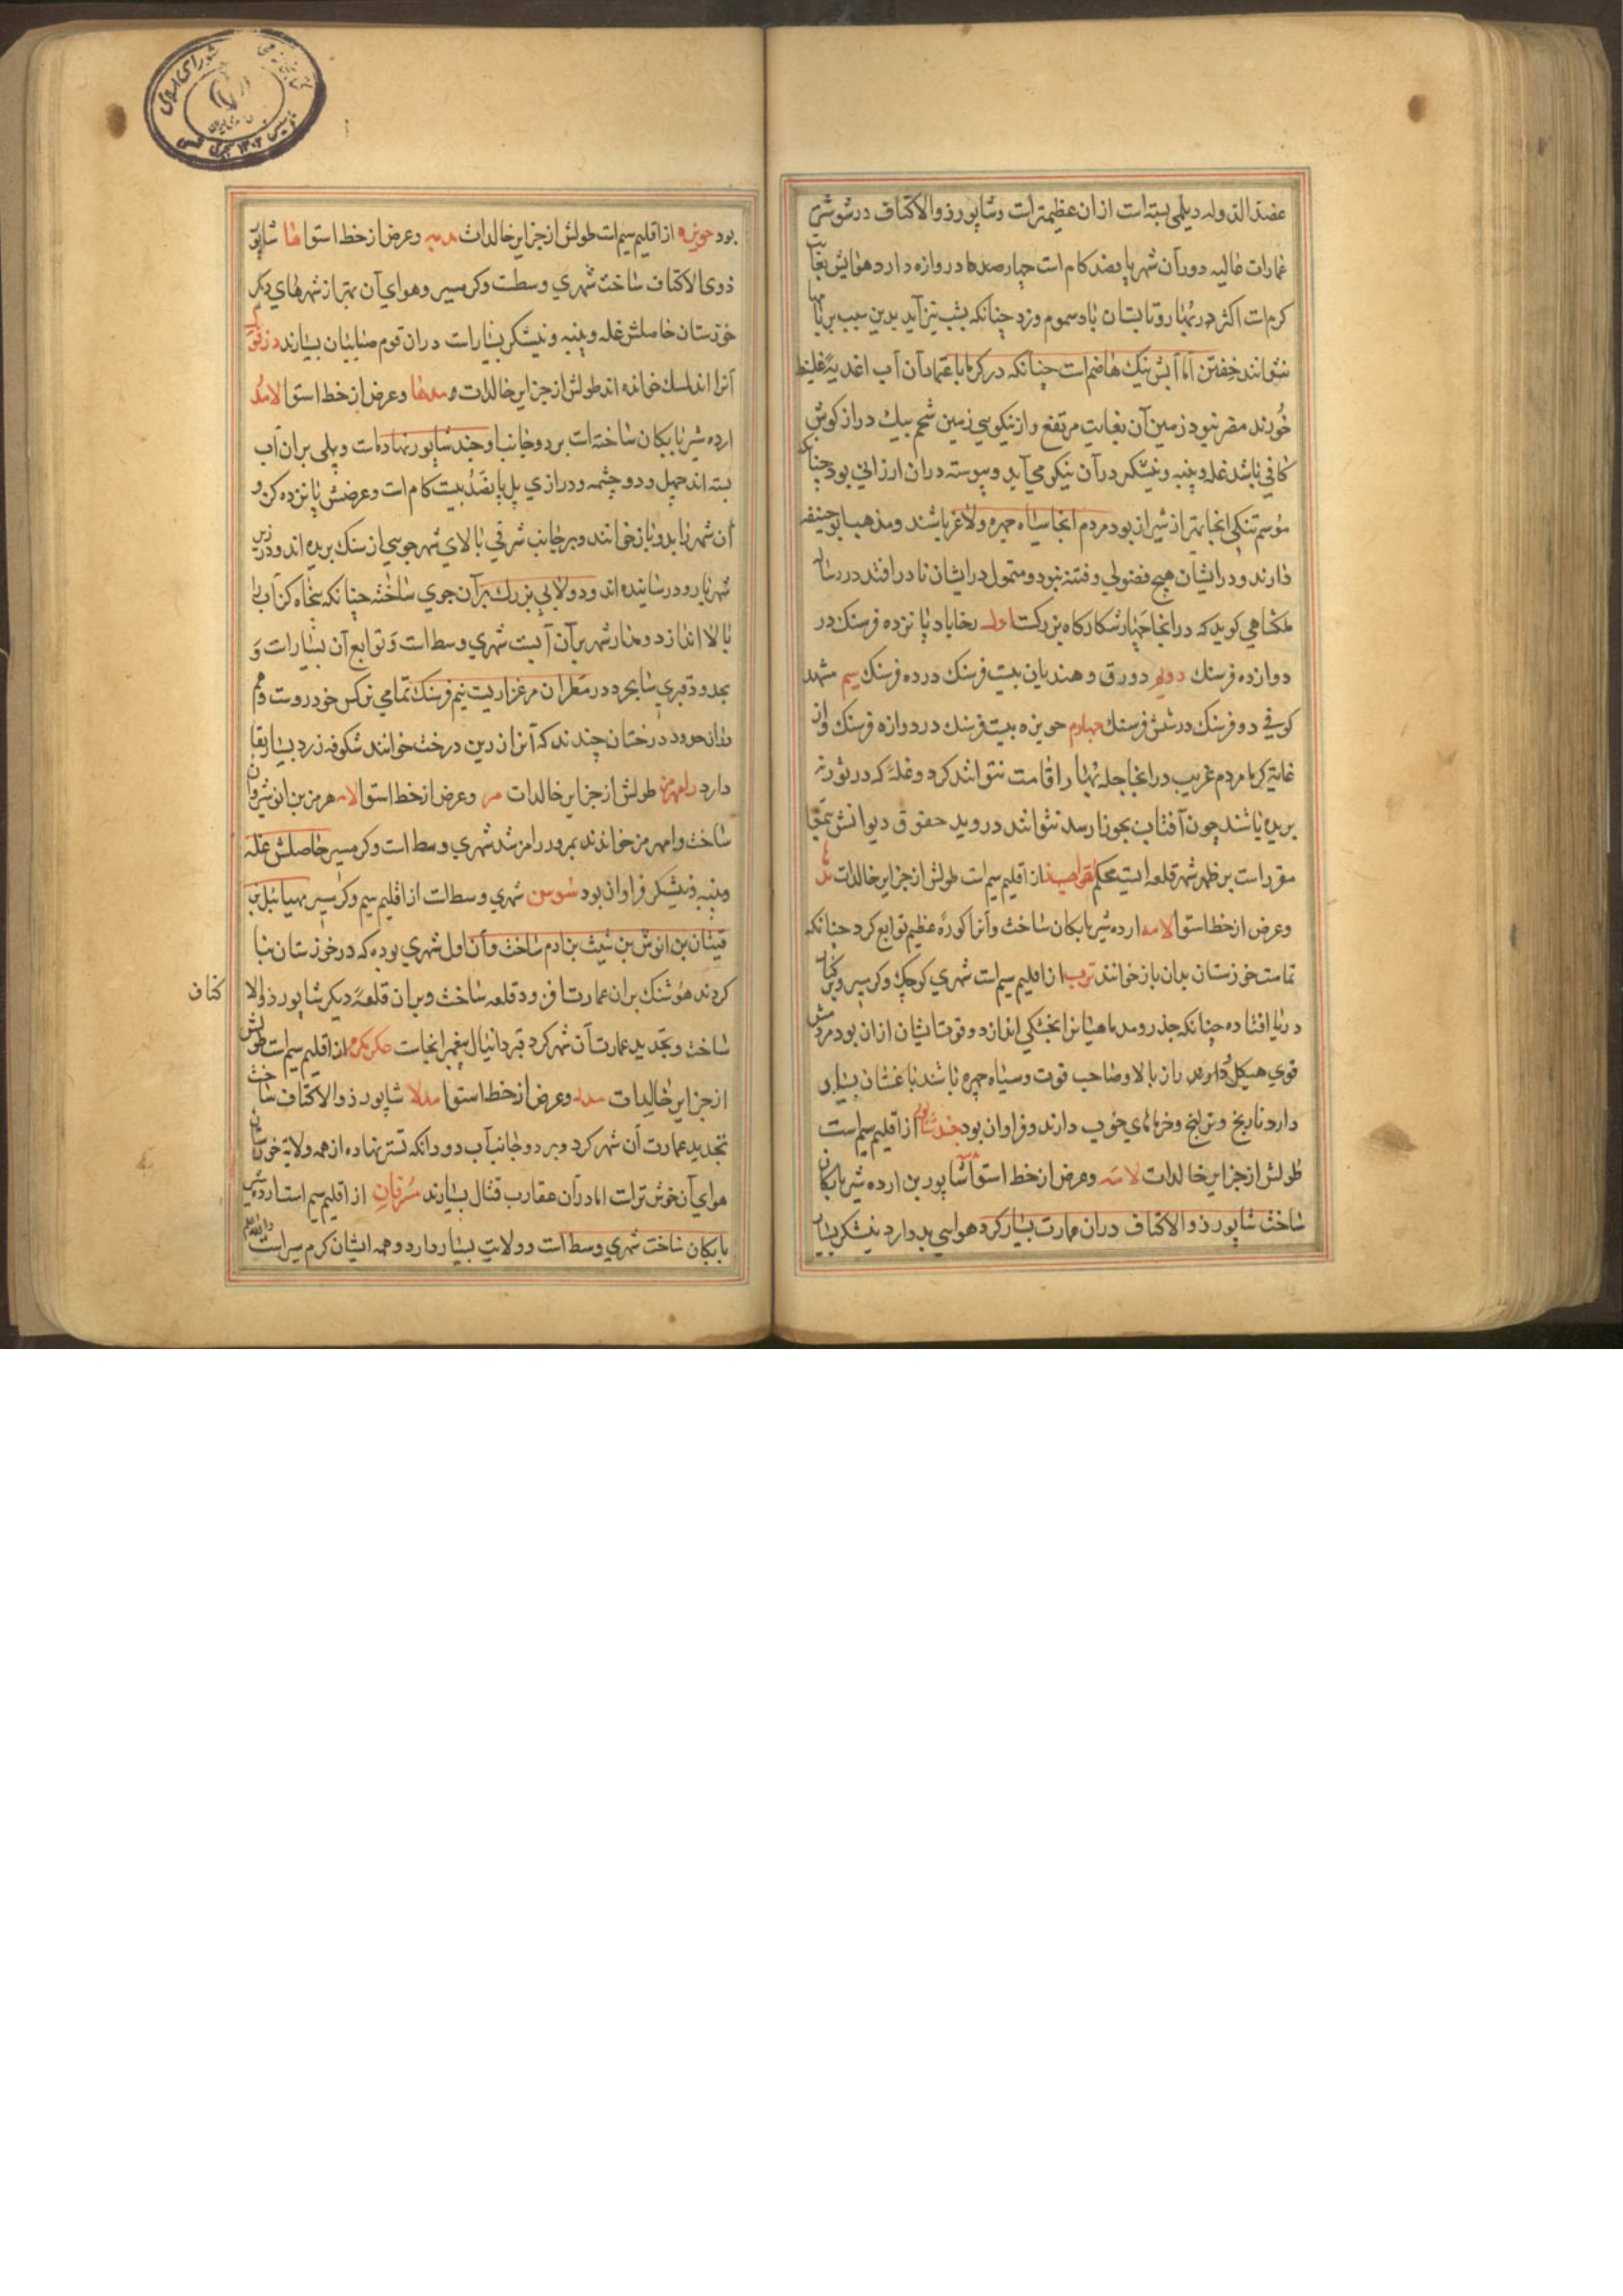 عضد الدوله دیلمی بسته است از ان عظیمتر است و شاپور ذوالاکتاف در شوشتر
عمارات عالیه دور آن شهر پانصد کام است چهار دروازه دارد هوایش بغایت
کرم است اکثر در بهار و تابستان باد سموم وزد چنانکه بشب نیز آید بدین سبب بر بامها
نتوانند خفتن اما آبش نیک هاضم است چنانکه در کرما باعتماد آن آب اغدیهٔ غلیظ
خورند مضر نبود زمین آن بغایت مرتفع و از نیکویی زمین شخم بیک دراز کوش
کافی باشد غله و پنبه و نیشکر درآن نیکو می آید و پیوسته دران ارزانی بود چنانکه
موسم تنکی انجا بهتر از شیراز بود مردم انجا سیاه چهره و لاغر باشند و مذهب ابو حنیفه
دارند و در ایشان هیچ فضولی و فتنه نبود و متمول در ایشان نادر افتد در رساله
ملکشاهی کوید که در انجا چهار شکارکاه بزرکست اول رخاباد پانزده فرسنک در
دوازده فرسنک دویم دورق و هندیان بیست فرسنک در ده فرسنک سیم مشهد
کوفی دو فرسنک در شش فرسنک چهارم حویزه بیست فرسنک در دوازه فرسنک و از
غایة کرما مردم غریب در انجا جله بهار اقامت نتوانند کرد و غلهٔ که در بو
بریده باشند چون آفتاب بجوزا رسد نتوانند دروید حقوق دیوانش بتمغا
مقرر است بر ظهر شهر قلعه ایست محکم از اقلیم سیم است طولش از جزایر خالدات
وعرض از خط استوا لامه ارده شیر بابکان ساخت و آنرا کورهٔ عظیم توابع کرد چنانکه
تمامت خوزستان بدان باز خوانند ترب از اقلیم سیم است شهری کوچک و کرمسیر و بر کنار
دریا افتاده چنانکه جذر و مد ماهیانرا بخشکی اندازد و قوتایشان از ان بود مردمش
قوی هیکل دراز بالا و صاحب قوت و سیاه چهره باشند باغستان بسیاری
دارد نارنج و ترنج و خرماهای خوب دارند و فراوان بود جندشاپور از اقلیم سیم است
طولش از جزایر خالدات وعرض از خط استوا شاپور بن ارده شیر بابکان
ساخت شاپور ذوالاکتاف دران عمارت بسیار کرد هوایی بد دارد نیشکر بسیار
بود حویزه از اقلیم سیم است طولش از جزایر خالدات وعرض از خط استوا شاپور
ذوی الاکتاف ساخت شهری وسطت و کرمسیر و هوای آن بهتر از شهرهای دیکر
خوزستان حاصلش غله و پنبه و نیشکر بسیار است دران قوم صابیان بسیارند
آنرا اندلسک خوانده اند طولش از جزایر خالدات وعرض از خط استوا
ارده شیر بابکان ساخته است بر دو جانب او جند شاپور نهاده است و پلی بران آب
بسته اند چهل و دو چشمه و درازی پل پانصد بیست کام است وعرضش پانزده کز و
آن شهر را بدو باز خوانند و بر جانب شرقی بالای شهر جویی از سنک بریده اند و در زیر
شهر با رود رسانیده اند و دولابی بزرک بر آن جوی ساخته چنانکه پنجاه کز آب را
بالا اندازد و مدار شهر بر آن آبست شهری وسط است و توابع آن بسیار است و
بحدود مرغزاریست نیم فرسنک تمامی نرکس خودروست و هم
درختان چندند که آنرا زرین درخت خوانند شکوفه زرد بسیار بقا
دارد رامهرمز طولش از جزایر خالدات وعرض از خط استوا هرمز بن انوشیروان
ساخت وامهرمز خواندند بمرور رامز شد شهری وسط است و کرمسیر حاصلش غله
و پنبه و نیشکر فراوان بود شوس شهری وسط است از اقلیم سیم و کرمسیر مهیائیل بن
قینان بن انوش بن شیث بن ادم ساخت و آن اول شهری بوده که در خوزستان بنا
کردند هوشنک بران عمارت افزود قلعه ساخت و بران قلعهٔ دیکر شاپور ذوالا
کتاف
ساخت و تجدید عمارت آن شهر کرد قبر دانیال پیغمبر انجاست عسکر مکرم از اقلیم سیم است طولش
از جزایر خالدات وعرض از خط استوا شاپور ذوالاکتاف ساخت
تجدید عمارت آن شهر کرد و بر دو جانب آب دو دانکه تستر نهاده از همه ولایة خوزستان
هوای آن خوش تر است اما درآن عقارب قتال بسیارند مسرقان از اقلیم سیم است ارده شیر
بابکان ساخت شهری وسط است و ولایت بسیار دارد و همه ایشان کرم سیر است